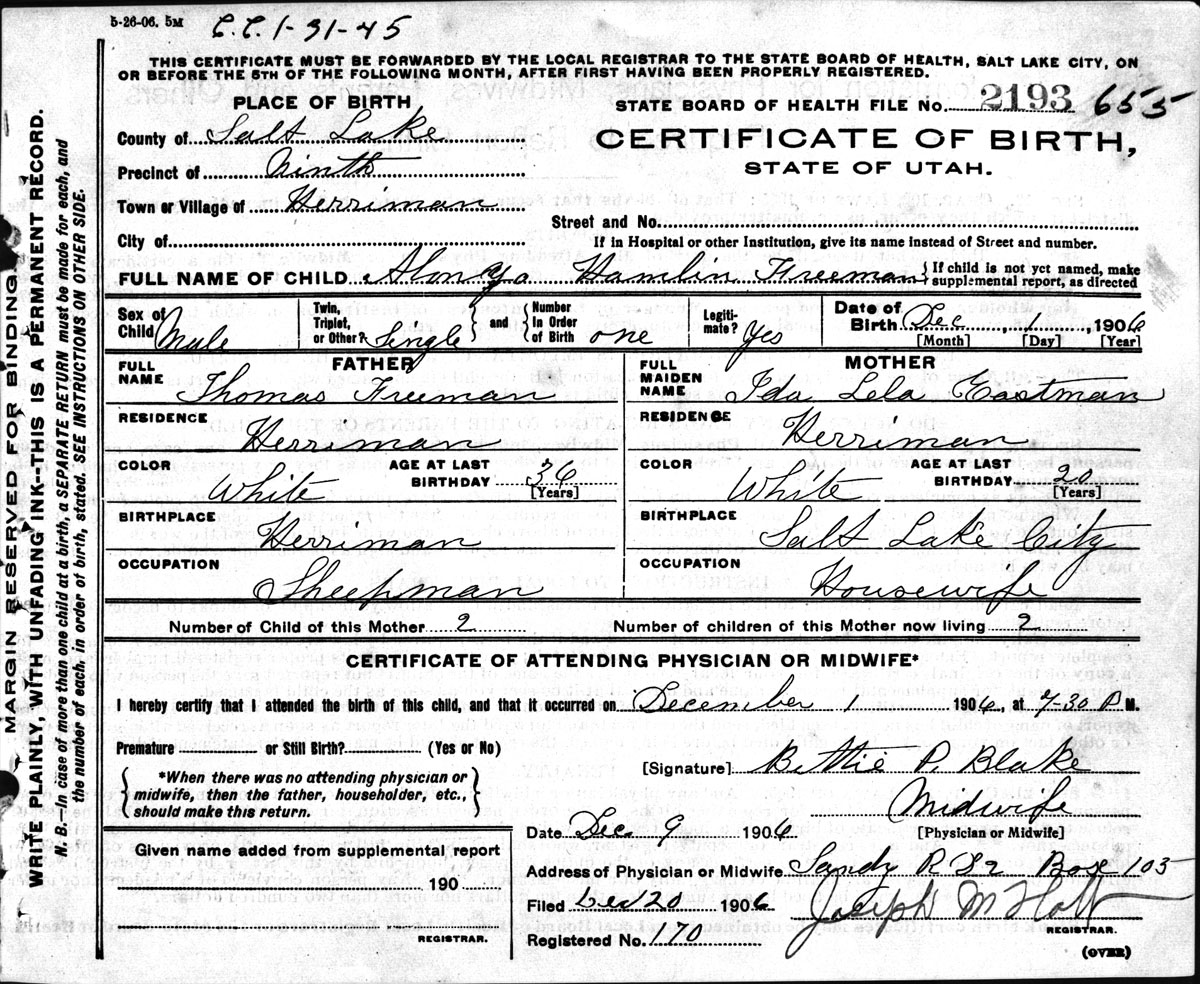 5-26-06. 5M
C.C. 1-31-45
THIS CERTIFICATE MUST BE FORWARDED BY THE LOCAL REGISTRAR TO THE STATE BOARD OF HEALTH, SALT LAKE CITY, ON
OR BEFORE THE 5TH OF THE FOLLOWING MONTH, AFTER FIRST HAVING BEEN PROPERLY REGISTERED.
PLACE OF BIRTH
STATE BOARD OF HEALTH FILE No. 2193 655
County of Salt Lake
CERTIFICATE OF BIRTH,
STATE OF UTAH.
Precinct of Ninth
Town or Village of Herriman
Street and No.
City of
If in Hospital or other Institution, give its name instead of Street and number.
FULL NAME OF CHILD Alonzo Hamlin Freeman { If child is not yet named, make
supplemental report, as directed
Sex of Child Male
Twin, Triplet, or Other? Single } and { Number In Order of Birth one
Legiti-mate? Yes
Date of Birth Dec, 1, 1906
[Month] [Day] [Year]
FATHER
MOTHER
FULL NAME Thomas Freeman
FULL MAIDEN NAME Ida Lela Eastman
RESIDENCE Herriman
RESIDENCE Herriman
COLOR White AGE AT LAST BIRTHDAY 36 [Years]
COLOR White AGE AT LAST BIRTHDAY 20 [Years]
BIRTHPLACE Herriman
BIRTHPLACE Salt Lake City
OCCUPATION Sheepman
OCCUPATION Housewife
Number of Child of this Mother 2 Number of children of this Mother now living 2
CERTIFICATE OF ATTENDING PHYSICIAN OR MIDWIFE*
I hereby certify that I attended the birth of this child, and that it occurred on December 1 1906, at 7-30 P.M.
Premature or Still Birth? (Yes or No)
[Signature] Bettie P. Blake
{ *When there was no attending physician or
midwife, then the father, householder, etc.,
should make this return. }
Midwife
[Physician or Midwife]
Date Dec 9 1906
Given name added from supplemental report
190
REGISTRAR.
Address of Physician or Midwife Sandy R F 2 Box 103
Filed Dec 20 1906
Joseph M Holt
REGISTRAR.
Registered No. 170
(OVER)
MARGIN RESERVED FOR BINDING
WRITE PLAINLY, WITH UNFADING INK--THIS IS A PERMANENT RECORD.
N. B.—In case of more than one child at a birth, a SEPARATE RETURN must be made for each, and
the number of each, in order of birth, stated. SEE INSTRUCTIONS ON OTHER SIDE.